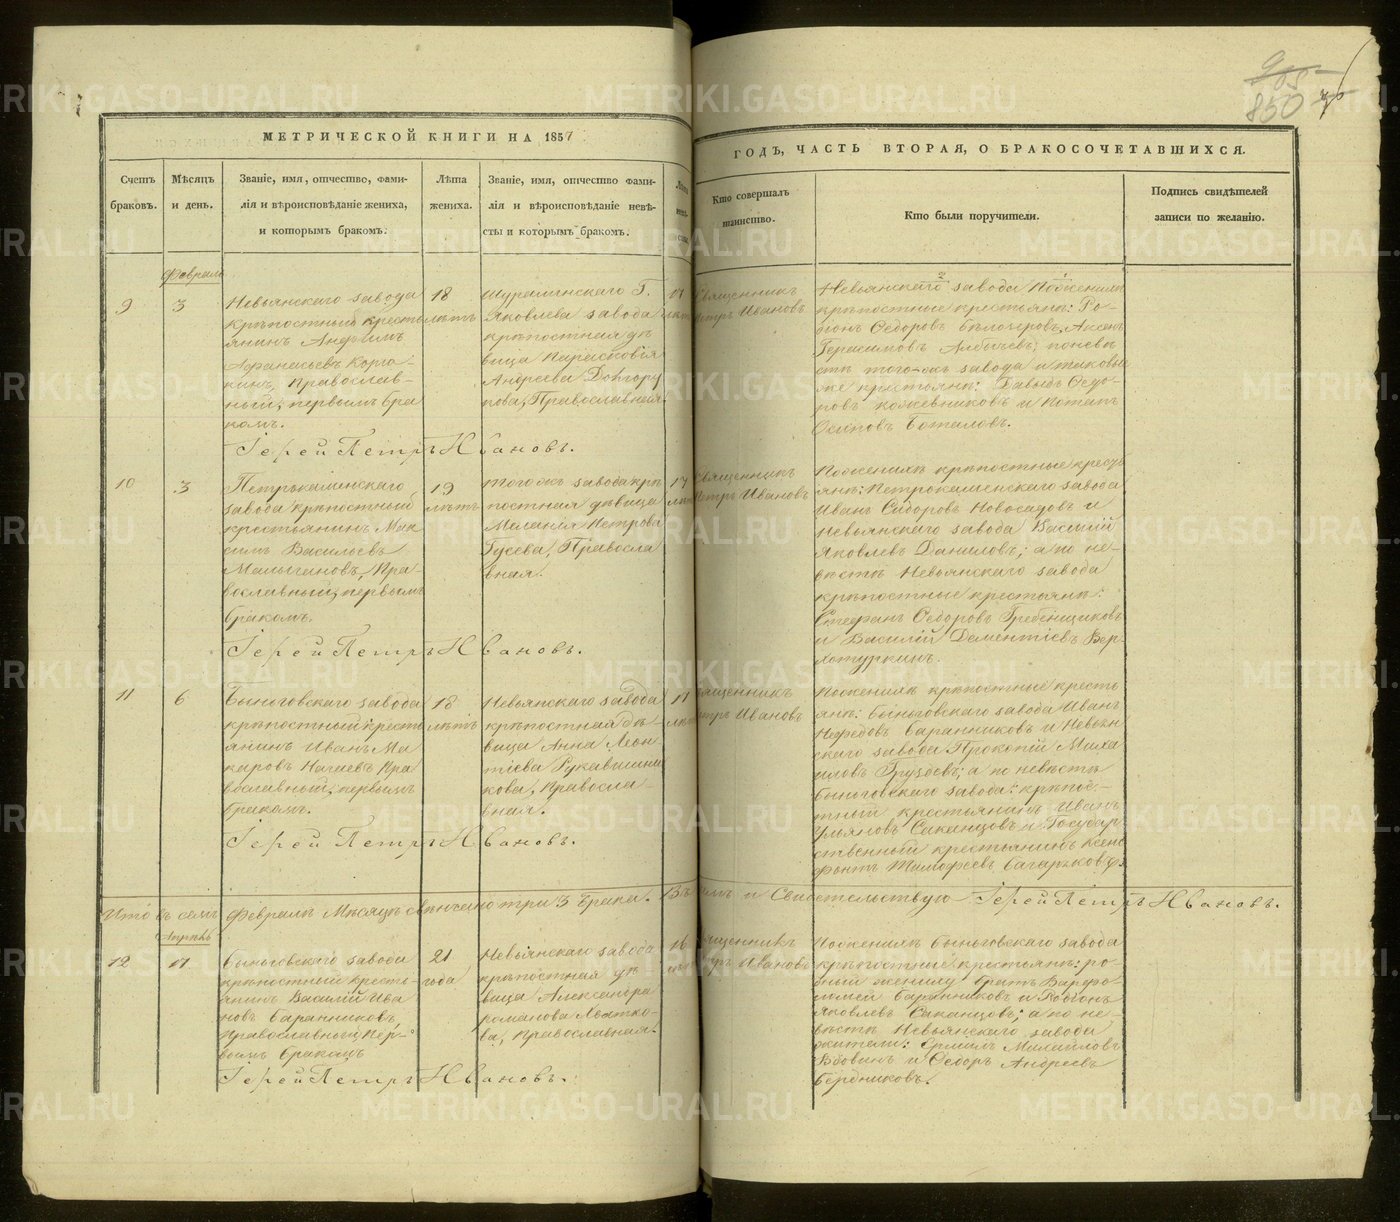 МЕТРИЧЕСКОЙ КНИГИ НА 1857
ГОДЪ, ЧАСТЬ ВТОРАЯ, О БРАКОСОЧЕТАВШИХСЯ.
850
Счетъ браковъ.
Мѣсяцъ и день.
Званіе, имя, отчество, фами-
лія и вѣроисповѣданіе жениха,
и которымъ бракомъ.
Лѣта
жениха.
Званіе, имя, отчество фами-
лія и вѣроисповѣданіе невѣ-
сты и которымъ бракомъ.
Кто совершалъ
таинство.
Кто были поручители.
Подпись свидѣтелей
записи по желанію.
Февраль
9
3
Невьянскаго завода
крѣпостный кресть
янинъ
Афанасьевъ
Православ-
ный, первымъ бра
комъ.
18
лѣтъ
Шуралинскаго Г.
Яковлева завода
крѣпостная дѣ
вица Парасковія
Андреева Долгору
кова, Православная.
17
лѣтъ
Священникъ
Петръ Ивановъ
Невьянскаго завода По женихѣ
крѣпостные крестьяне: Ро-
діонъ Ѳедоровъ Бѣлочеровъ, Аксенъ
Герасимовъ; по невѣ
стѣ того-жъ завода и таковые
же крестьяне: Давыдъ Ѳедо-
ровъ Кожевниковъ и Потапъ
Осиповъ Боталовъ.
Іерей Петръ Ивановъ.
10
3
Петрокаменскаго
завода крѣпостный
крестьянинъ Мак
симъ Васильевъ
Малыгановъ, Пра-
вославный, первымъ
бракомъ.
19
лѣтъ
Того жъ завода крѣ
постная дѣвица
Меланія Петрова
Гусева, Правосла
вная.
17
лѣтъ
Священникъ
Петръ Ивановъ
По женихѣ крѣпостные кресть
яне: Петрокаменскаго завода
Иванъ Сидоровъ Новосадовъ и
Невьянскаго завода Василій
Яковлевъ Даниловъ; а по не-
вѣстѣ Невьянскаго завода
крѣпостные крестьяне:
Стефанъ Ѳедоровъ Гребенщиковъ
и Василій Дементіевъ Вер-
хотуркинъ.
Іерей Петръ Ивановъ.
11
6
Быньговскаго завода
крѣпостный кресть
янинъ Иванъ Ма
каровъ Нагаевъ Пра
вославный, первымъ
бракомъ.
18
лѣтъ
Невьянскаго завода
крѣпостная дѣ-
вица Анна Леон-
тіева Рукавишни
кова, Правосла-
вная.
17
лѣтъ
Священникъ
Петръ Ивановъ
По женихѣ крѣпостные кресть
яне: Быньговскаго завода Иванъ
Нефедовъ Баранниковъ и Невьян
скаго завода Прокопій Миха
иловъ Груздевъ; а по невѣстѣ
Быньговскаго завода: крѣпос-
тный крестьянинъ Иванъ
Ульяновъ Саканцовъ и Государ
ственный крестьянинъ Ксено
фонтъ Тимофеевъ
Іерей Петръ Ивановъ.
Итого въ семъ Февралѣ Мѣсяцѣ свѣнчено три 3 Брака. Въ чемъ и Свидетельствую Іерей Петръ Ивановъ.
Апрѣль
12
17
Быньговскаго завода
крѣпостный кресть-
янинъ Василій Ива
новъ Баранниковъ
Православный, Пер-
вымъ бракомъ
21
года
Невьянскаго завода
крѣпостная дѣ
вица Александра
Романова Хватко-
ва, Православная.
16
лѣтъ
Священникъ
Петръ Ивановъ
По женихѣ Быньговскаго завода
крѣпостные крестьяне: ро-
дный жениху братъ Варфо-
ломей Баранниковъ и Родіонъ
Яковлевъ Саканцовъ; а по не-
вѣстѣ Невьянскаго завода
жители: Ермилъ Михайловъ
Вдовинъ и Ѳедоръ Андреевъ
Бердниковъ.
Іерей Петръ Ивановъ.
METRIKI.GASO-URAL.RU